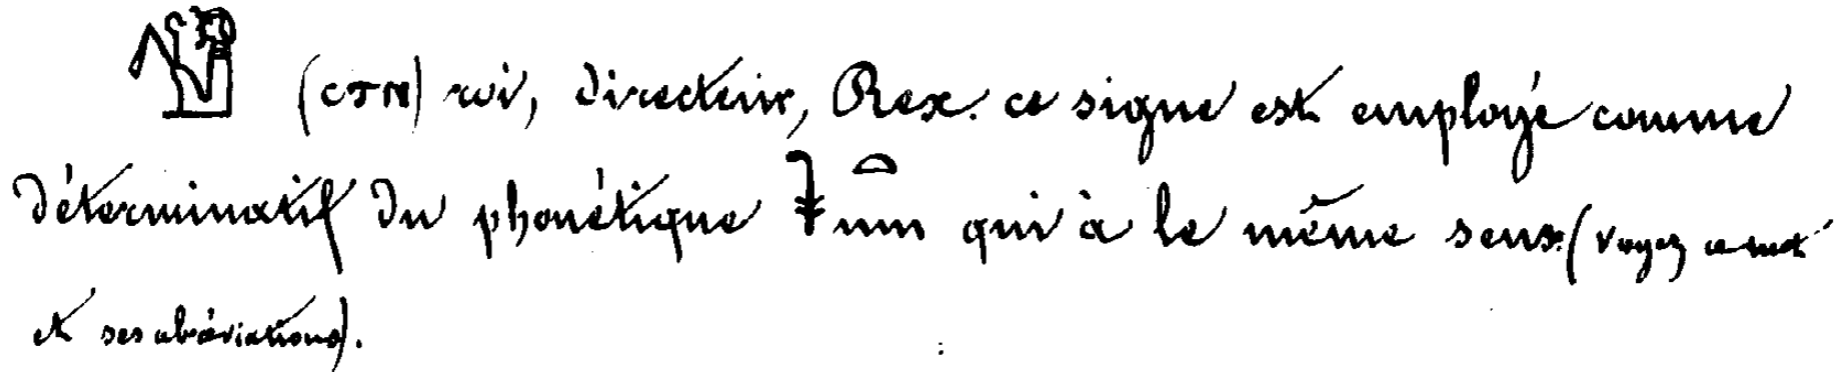 (ⲥⲧⲛ) roi, directeur, Rex. ce signe est employé comme
déterminatif du phonétique 𓇓𓏏𓈖 qui à le même sens (voyez ce mot
et ses abréviations).